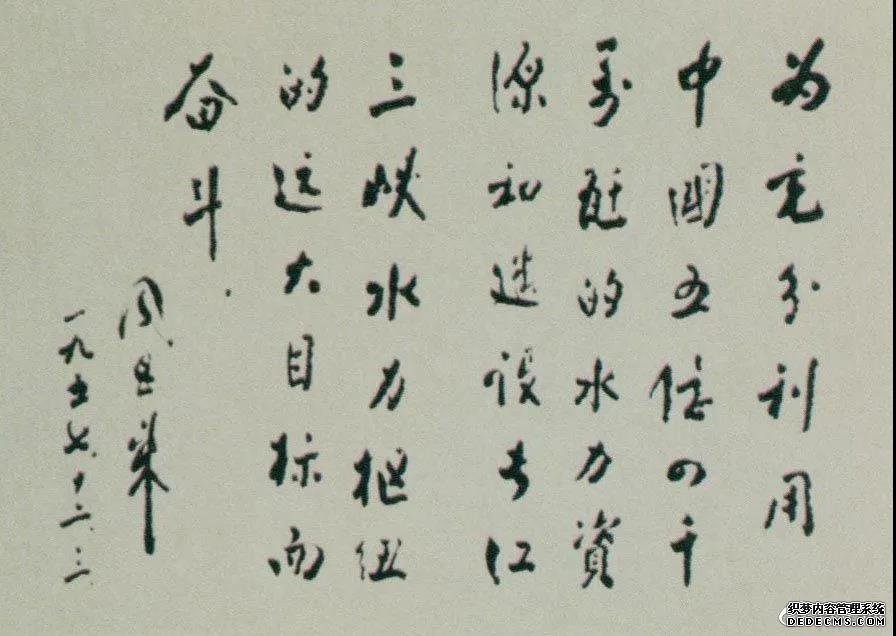 为充分利用
中國五亿四千
万瓩的水力資
源和建设长江
三峡水力枢纽
的远大目标而
奋斗.
周恩来
一九五七.十二.三.
织梦内容管理系统
DEDECMS.COM